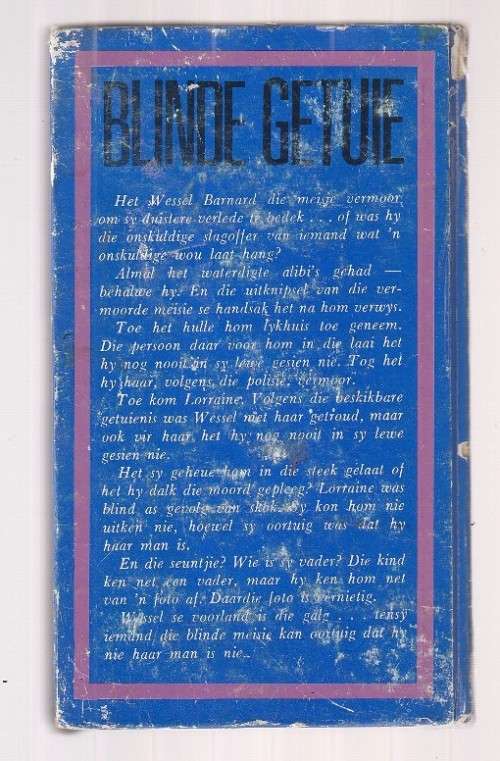 BLINDE GETUIE
Het Wessel Barnard die meisie vermoor
om sy duistere verlede te bedek . . . of was hy
die onskuldige slagoffer van iemand wat 'n
onskuldige wou laat hang?
Almal het waterdigte alibi's gehad —
behalwe hy. En die uitknipsel van die ver-
moorde meisie se handsak het na hom verwys.
Toe het hulle hom lykhuis toe geneem.
Die persoon daar voor hom in die laai het
hy nog nooit in sy lewe gesien nie. Tog het
hy haar, volgens die polisie, vermoor.
Toe kom Lorraine. Volgens die beskikbare
getuienis was Wessel met haar getroud, maar
ook vir haar het hy nog nooit in sy lewe
gesien nie.
Het sy geheue hom in die steek gelaat of
het hy dalk die moord gepleeg? Lorraine was
blind as gevolg van skok. Sy kon hom nie
uitken nie, hoewel sy oortuig was dat hy
haar man is.
En die seuntjie? Wie is sy vader? Die kind
ken net een vader, maar hy ken hom net
van 'n foto af. Daardie foto is vernietig.
Wessel se voorland is die galg . . . tensy
iemand die blinde meisie kan oortuig dat hy
nie haar man is nie..